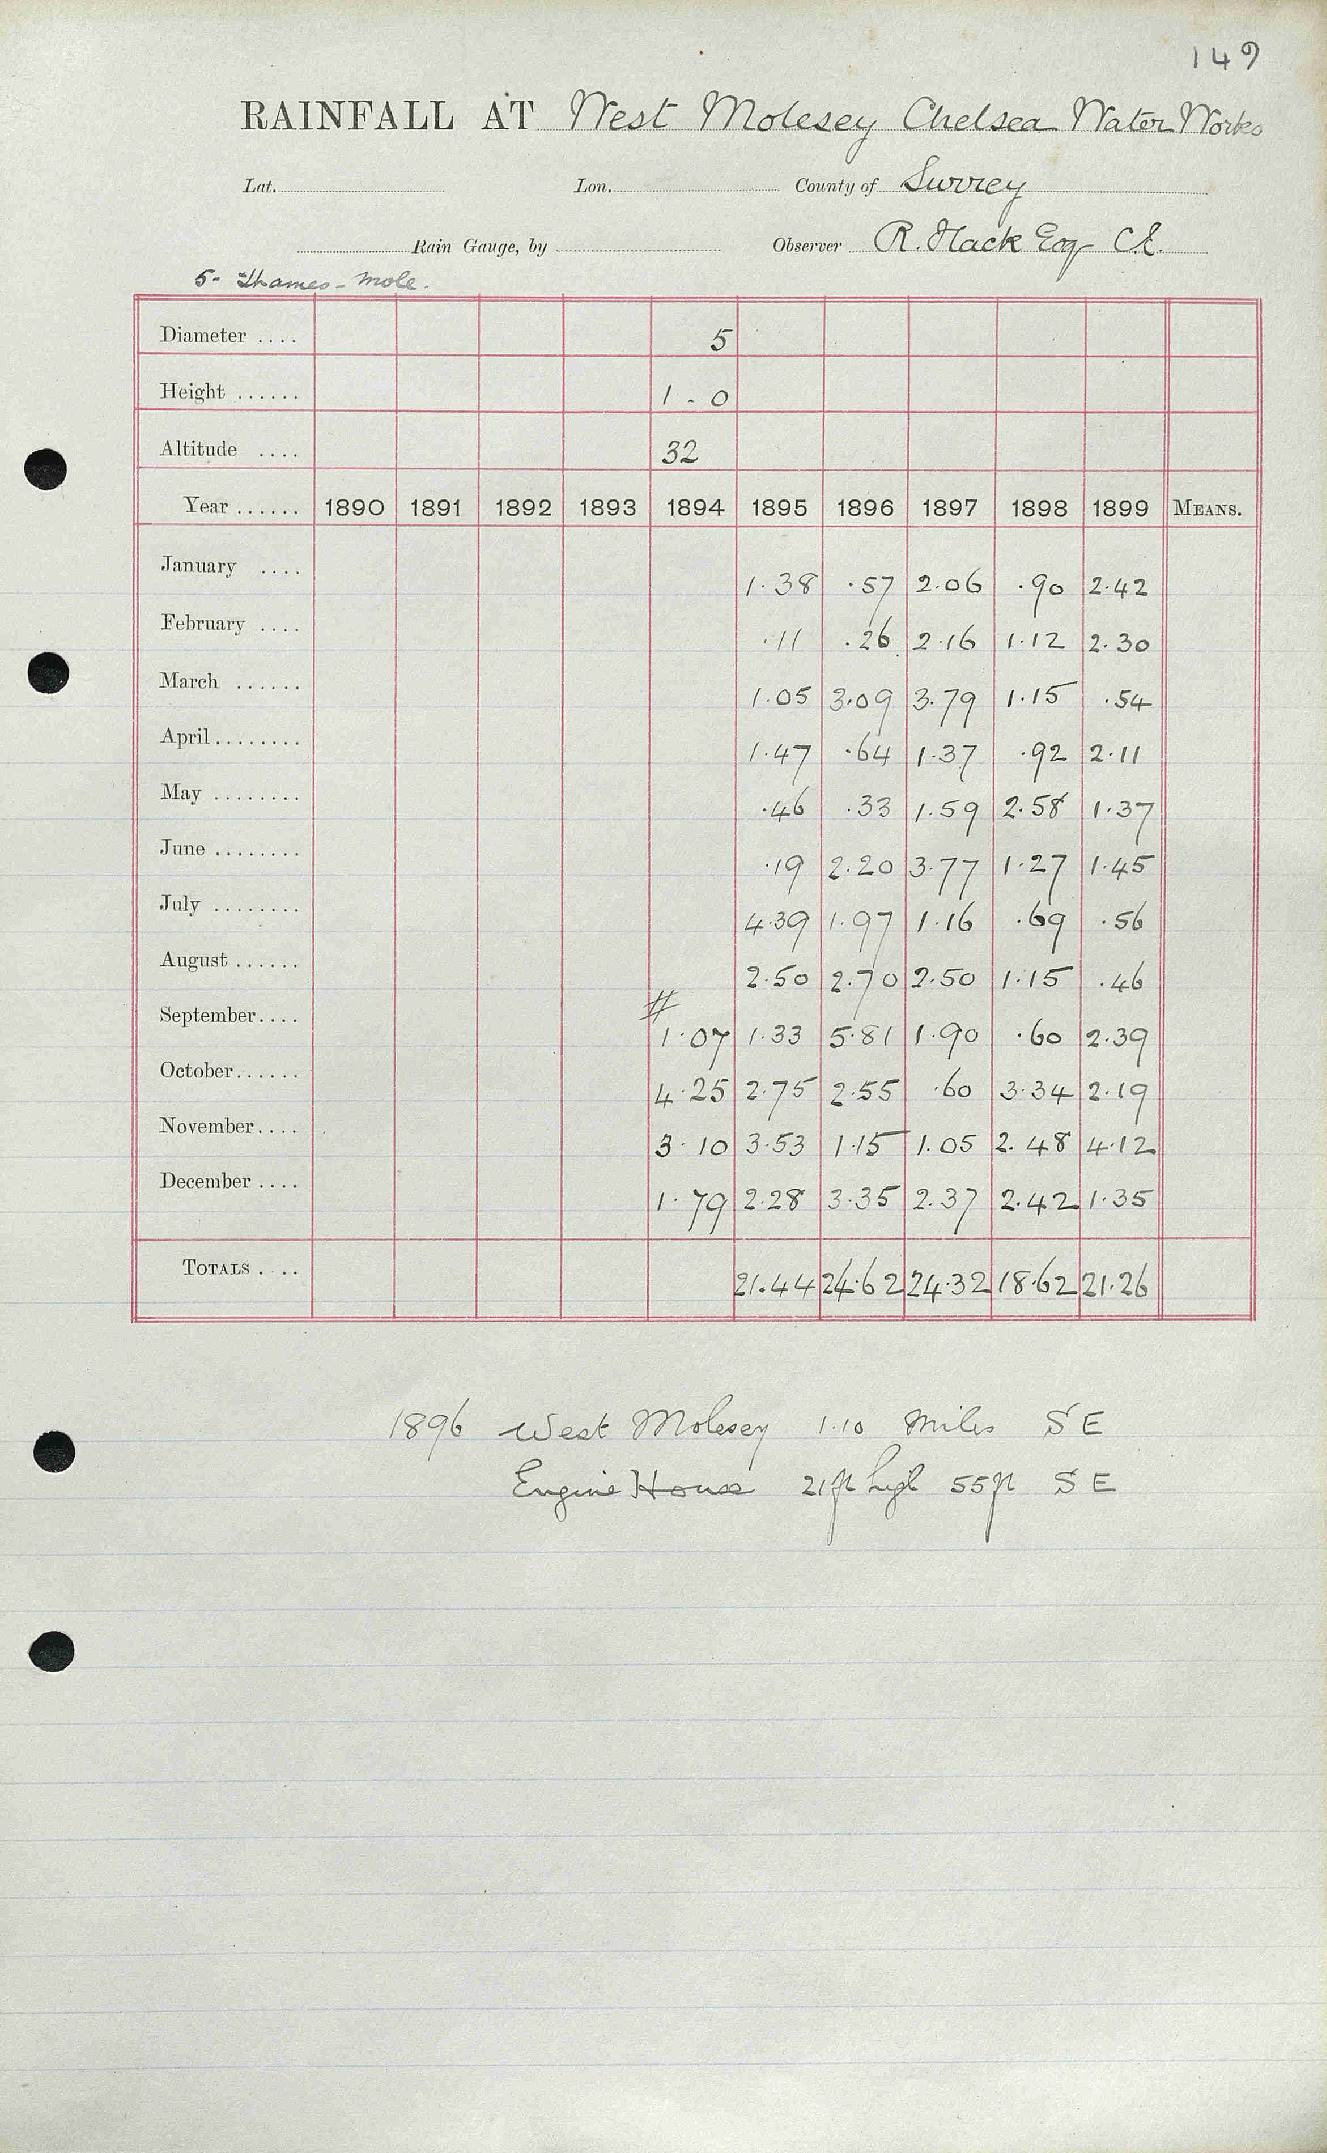 149
RAINFALL AT West Molesey Chelsea Water Works
Lat. Lon. County of Surrey
Rain Gauge, by Observer R. Hack Esq C.E.
5- Thames - Mole.
Diameter .... 5
Height ...... 1 - 0
Altitude .... 32
Year ...... 1890 1891 1892 1893 1894 1895 1896 1897 1898 1899 MEANS.
January .... 1.38 .57 2.06 .90 2.42
February .... .11 .26 2.16 1.12 2.30
March ...... 1.05 3.09 3.79 1.15 .54
April........ 1.47 .64 1.37 .92 2.11
May ........ .46 .33 1.59 2.58 1.37
June ........ .19 2.20 3.77 1.27 1.45
July ........ 4.39 1.97 1.16 .69 .56
August ...... 2.50 2.70 2.50 1.15 .46
#
September.... 1.07 1.33 5.81 1.90 .60 2.39
October...... 4.25 2.75 2.55 .60 3.34 2.19
November.... 3.10 3.53 1.15 1.05 2.48 4.12
December .... 1.79 2.28 3.35 2.37 2.42 1.35
TOTALS .... 21.44 24.62 24.32 18.62 21.26
1896 West Molesey 1.10 miles SE
Engine House 21ft high 55ft SE